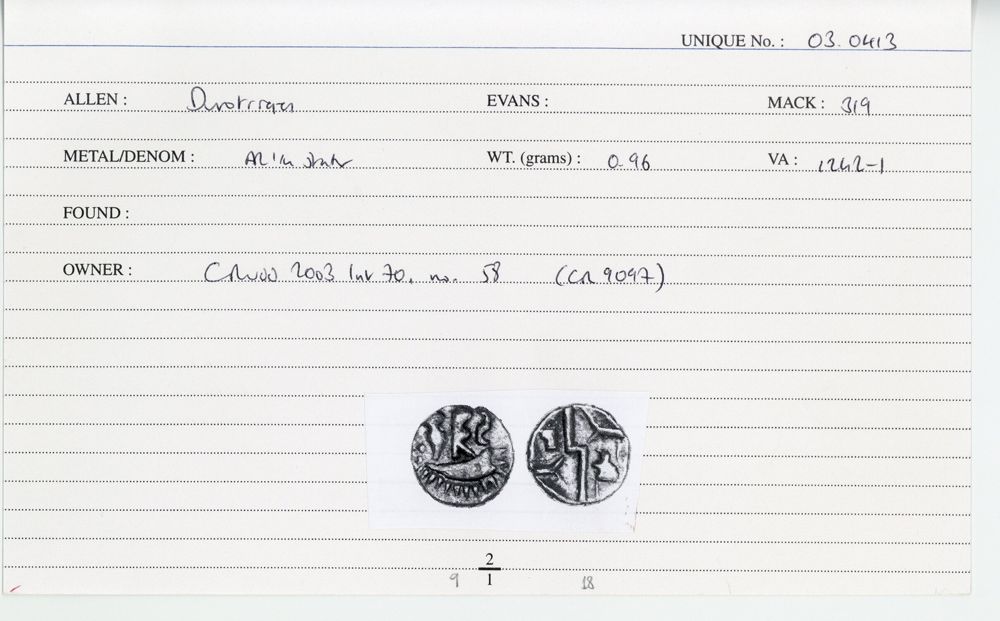 UNIQUE No. : 03.0413
ALLEN : Durotriges EVANS : MACK : 319
METAL/DENOM : WT. (grams) : 0.96 VA : 1242-1
FOUND :
OWNER : 2003 70, no. 58 (CR 9097)
2
9 1 18